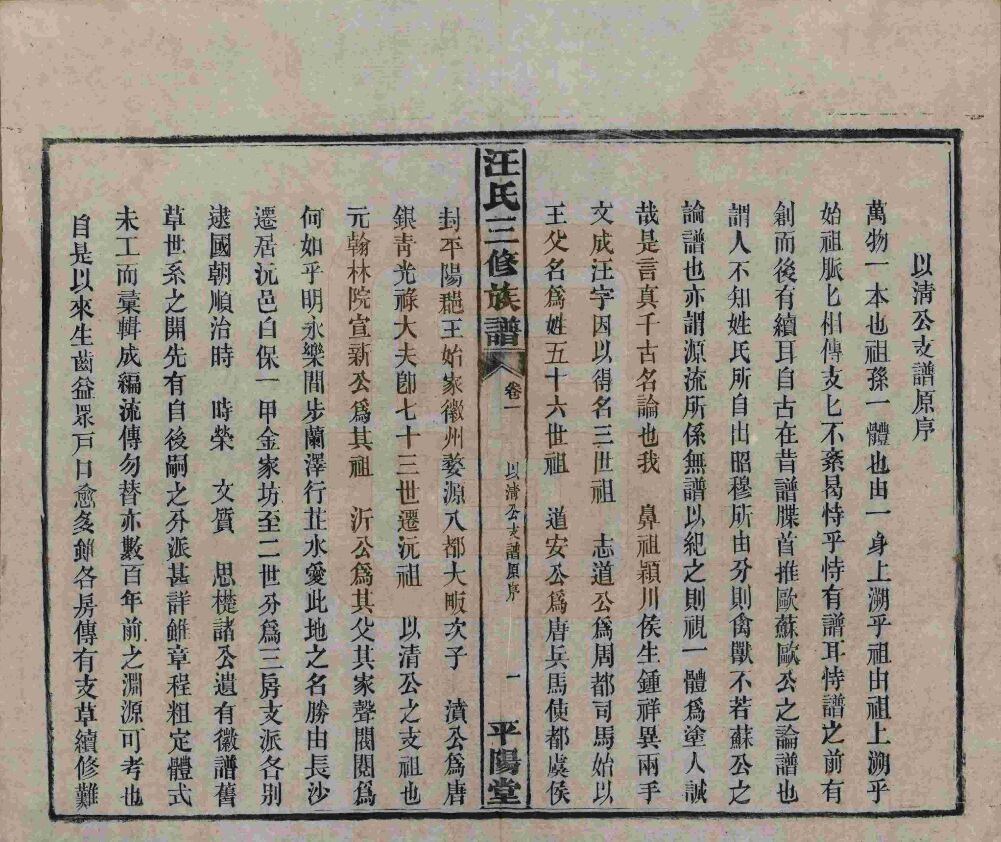 以清公支譜原序
萬物一本也祖孫一體也由一身上溯乎祖由祖上溯乎
始祖脈匕相傳支匕不紊曷恃乎恃有譜耳恃譜之前有
創而後有續耳自古在昔譜牒首推歐蘇歐公之論譜也
謂人不知姓氏所自出昭穆所由分則禽獸不若蘇公之
論譜也亦謂源流所係無譜以紀之則視一體為塗人誠
哉是言真千古名論也我 鼻祖穎川侯生鍾祥異兩手
文成汪字因以得名三世祖 志道公為周都司馬始以
王父名為姓五十六世祖 道安公為唐兵馬使都虞侯
汪氏三修族譜 卷一 以清公支譜原序 一 平陽堂
封平陽郡王始家徽州婺源八都大畈次子 濆公為唐
銀青光祿大夫卽七十三世遷沅祖 以清公之支祖也
元翰林院宣新公為其祖 沂公為其父其家聲閥閱為
何如乎明永樂間步蘭澤行芷水愛此地之名勝由長沙
遷居沅邑白保一甲金家坊至二世分為三房支派各別
逮國朝順治時 時榮 文質 思楚諸公遺有徽譜舊
草世系之開先有自後嗣之分派甚詳雖章程粗定體式
未工而彙輯成編流傳勿替亦數百年前之淵源可考也
自是以來生齒益眾戶口愈多雖各房傳有支草續修難